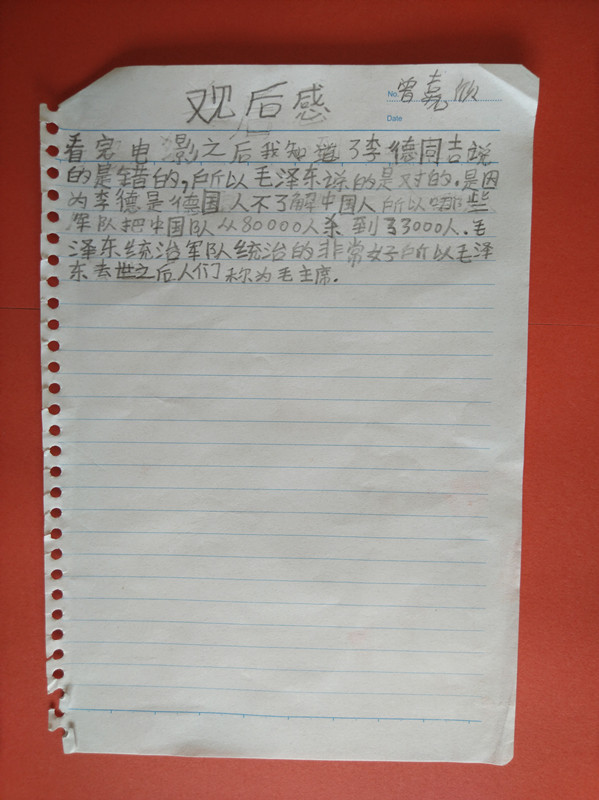 观后感
No. 曾嘉欣
Date
看完电影之后我知道了李德同志说
的是错的,所以毛泽东说的是对的.是因
为李德是德国人不了解中国人所以哪些
军队把中国队从80000人杀到33000人.毛
泽东统治军队统治的非常好所以毛泽
东去世之后人们称为毛主席.